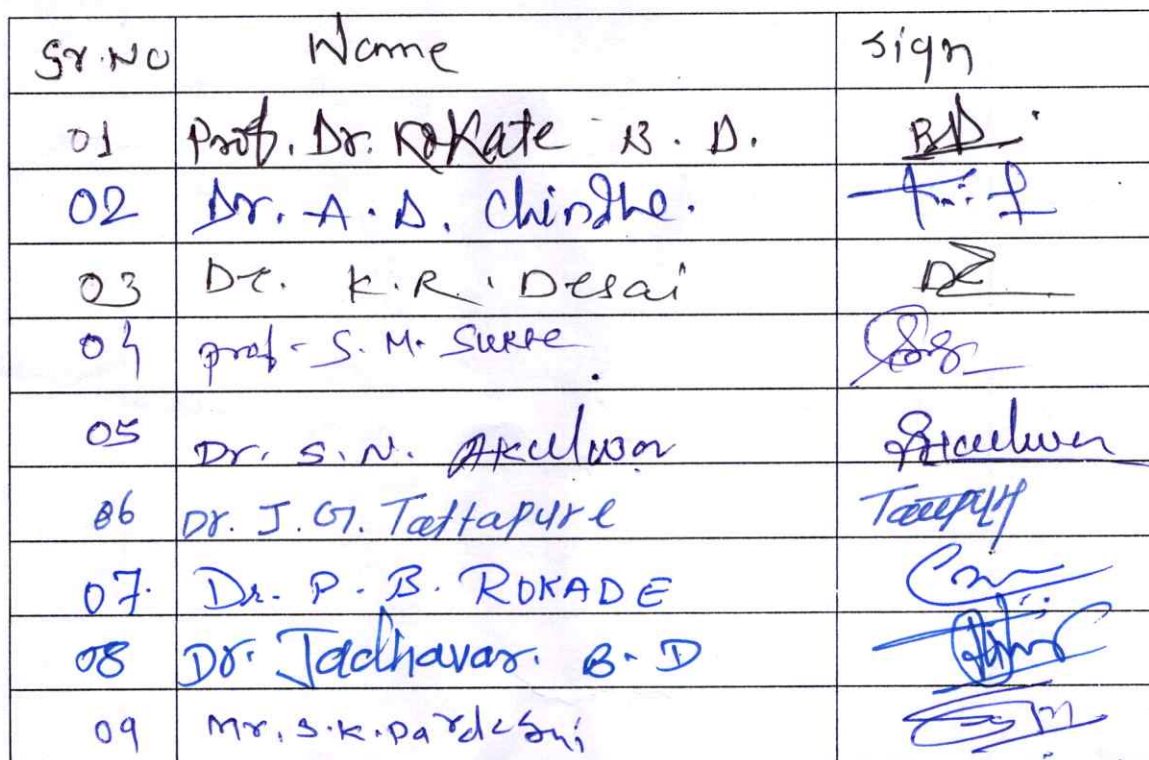 Sr.No Name Sign
01 Prof. Dr. Kokate B. D. BD
02 Dr. A. D. Chindhe.
03 Dr. K. R. Desai
04 prof. S. M. Surve
05 Dr. S. N. Akulwar
06 Dr. J. G. Tattapure
07. Dr. P. B. ROKADE
08 Dr. Jadhavar. B. D
09 Mr. S. K. Pardeshi